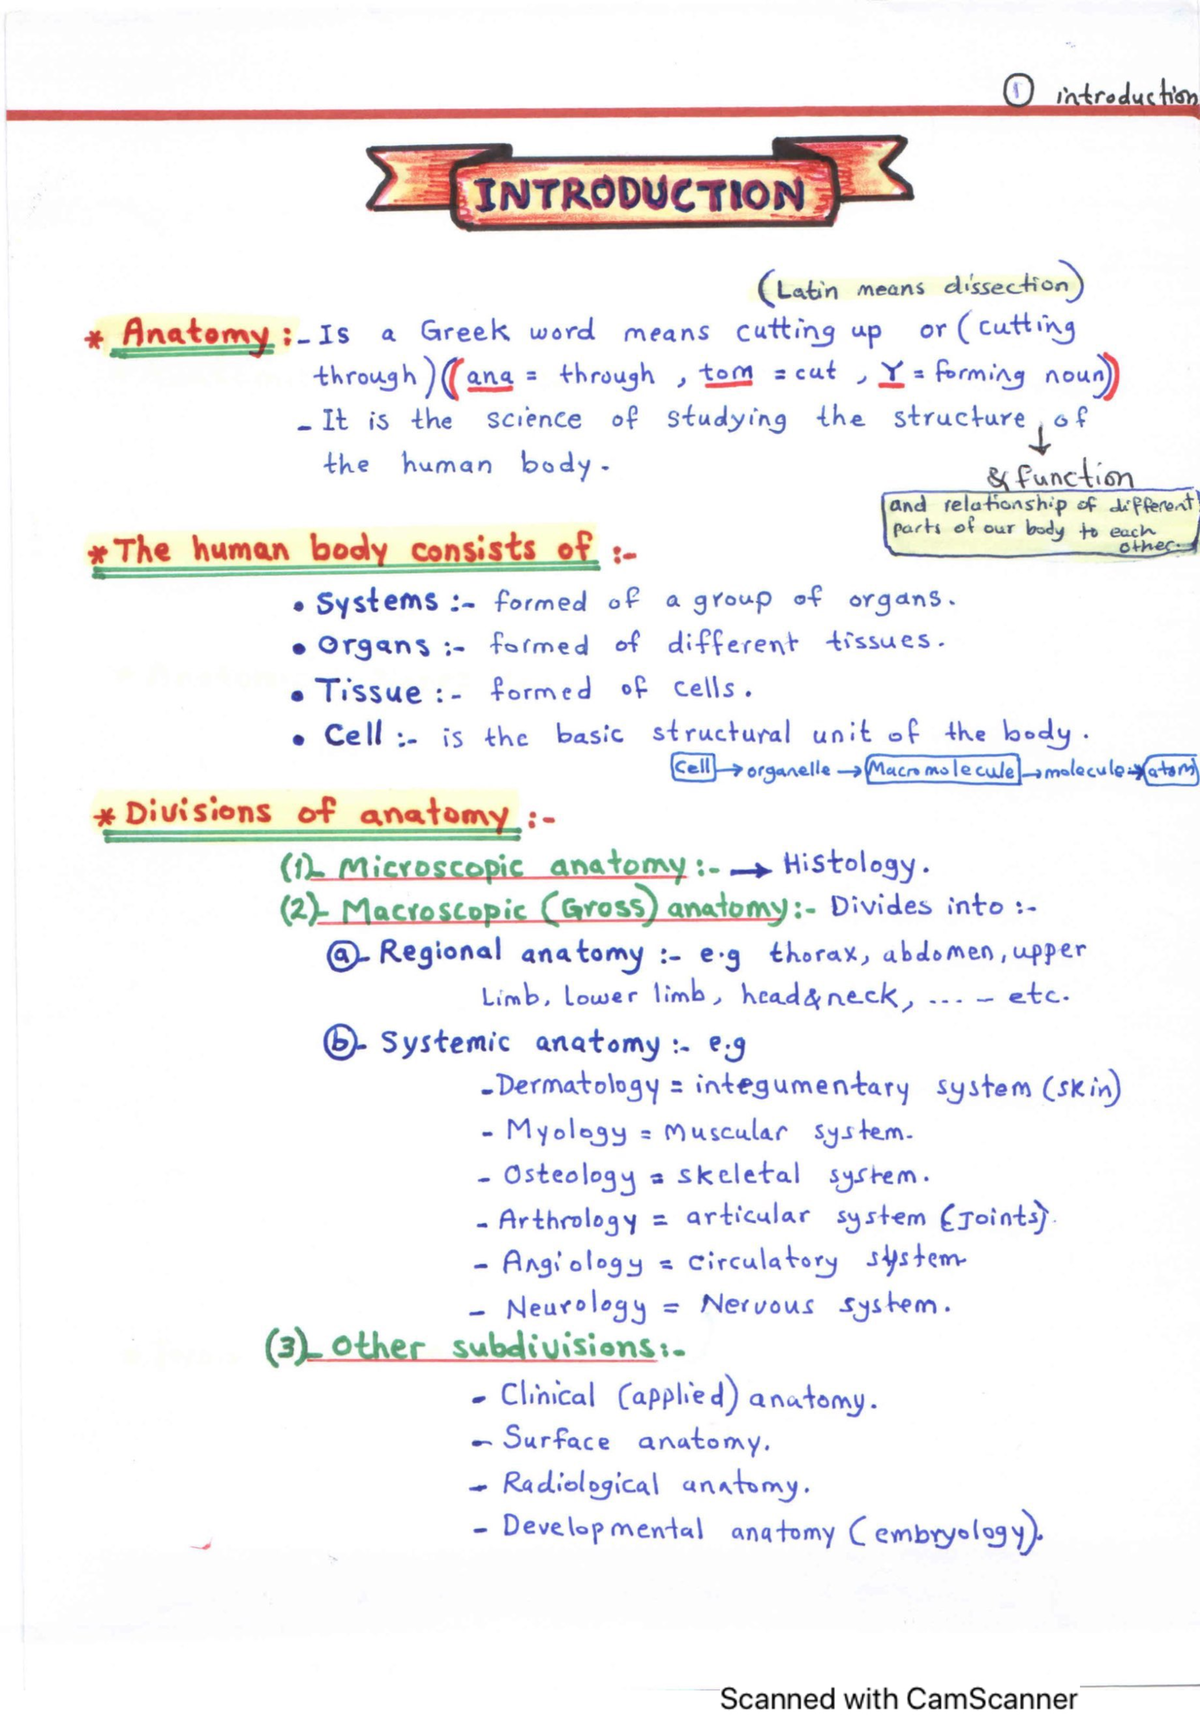 ① introduction
INTRODUCTION
(Latin means dissection)
* Anatomy :- Is a Greek word means cutting up or (cutting
through) (ana = through, tom = cut, Y = forming noun)
- It is the science of studying the structure of
the human body.
↓
& function
and relationship of different
parts of our body to each
other.
* The human body consists of :-
• Systems :- formed of a group of organs.
• Organs :- formed of different tissues.
• Tissue :- formed of cells.
• Cell :- is the basic structural unit of the body.
Cell → organelle → Macromolecule → molecule → atom
* Divisions of anatomy :-
(1)- Microscopic anatomy :- → Histology.
(2)- Macroscopic (Gross) anatomy :- Divides into :-
ⓐ- Regional anatomy :- e.g thorax, abdomen, upper
Limb, Lower limb, head & neck, .... - etc.
ⓑ- Systemic anatomy :- e.g
- Dermatology = integumentary system (skin)
- Myology = Muscular system.
- Osteology = skeletal system.
- Arthrology = articular system (Joints).
- Angiology = circulatory system
- Neurology = Nervous system.
(3)- Other subdivisions :-
- Clinical (applied) anatomy.
- Surface anatomy.
- Radiological anatomy.
- Developmental anatomy (embryology).
Scanned with CamScanner